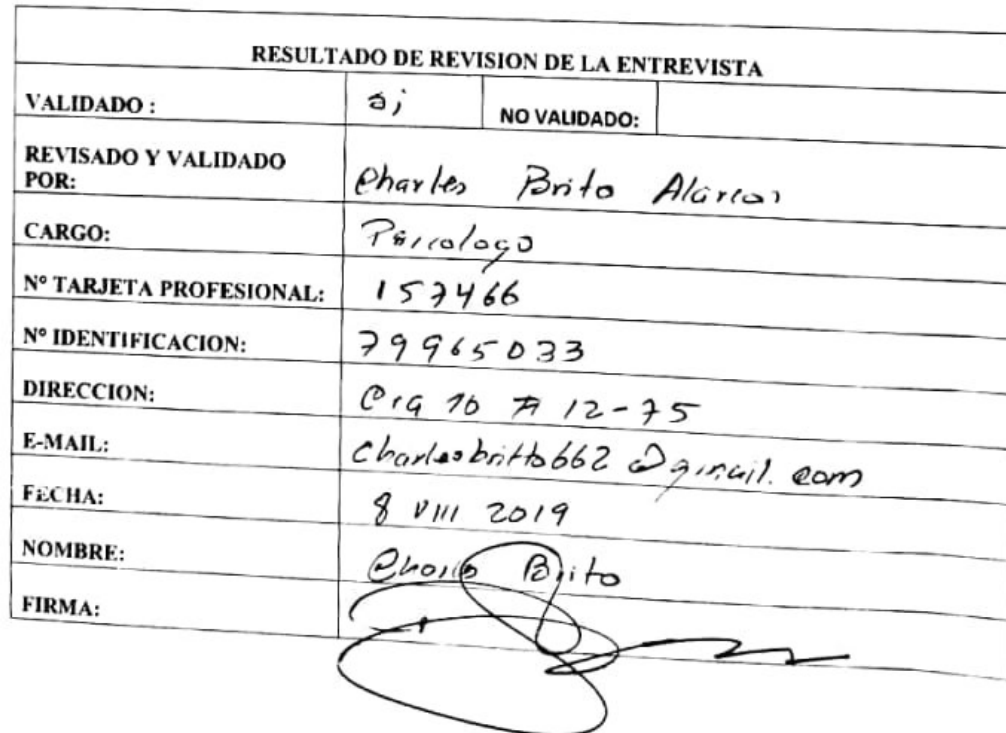 RESULTADO DE REVISION DE LA ENTREVISTA
VALIDADO : si NO VALIDADO:
REVISADO Y VALIDADO
POR: Charles Brito Alarcon
CARGO: Psicologo
Nº TARJETA PROFESIONAL: 157466
Nº IDENTIFICACION: 79965033
DIRECCION: Cra 10 # 12-75
E-MAIL: charlesbritto662@gmail.com
FECHA: 8 VIII 2019
NOMBRE: Charles Brito
FIRMA: